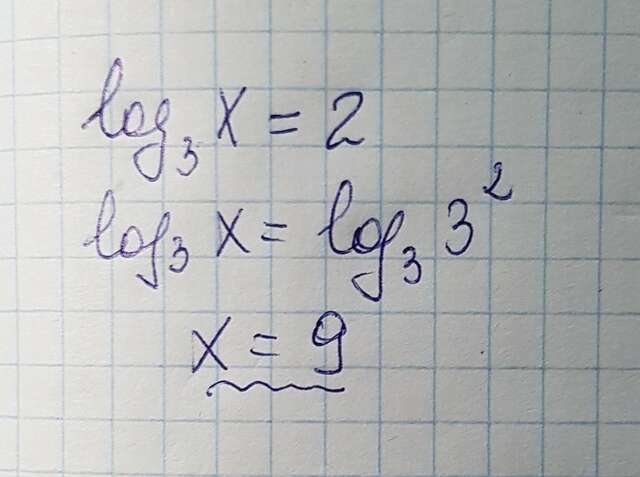 log₃ x = 2
log₃ x = log₃ 3²
x = 9